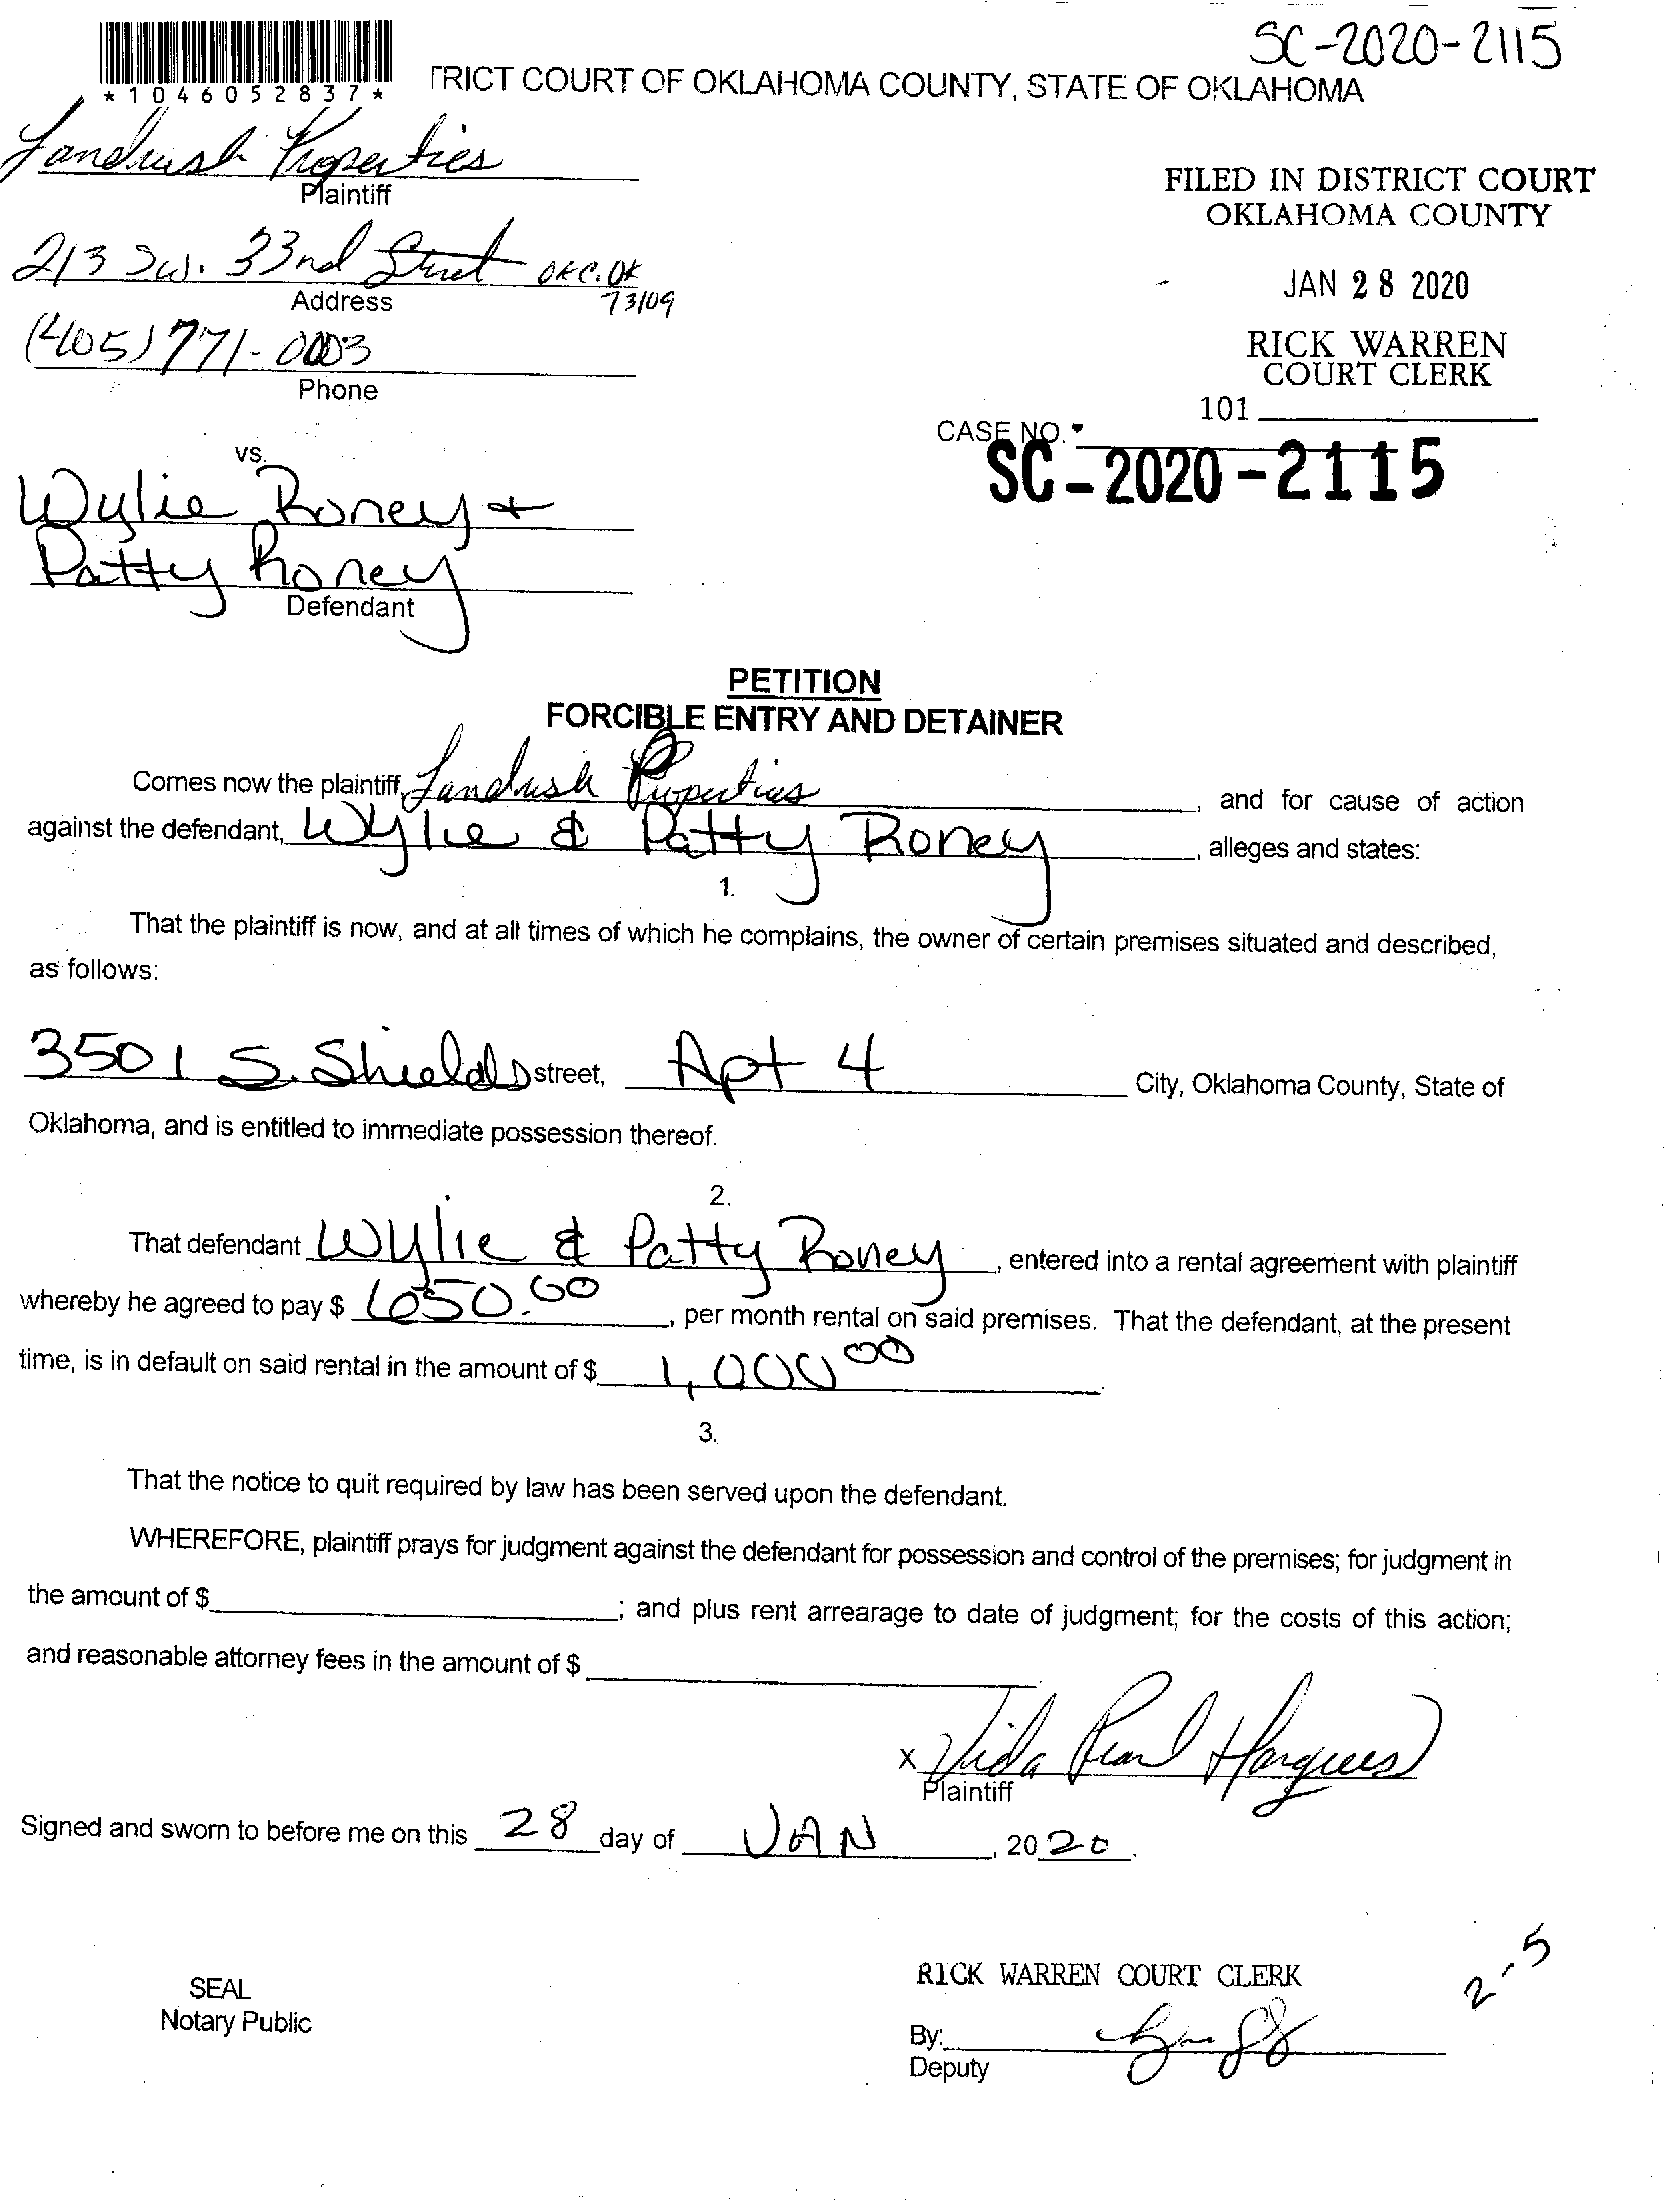 SC-2020-2115
*1046052837*
TRICT COURT OF OKLAHOMA COUNTY, STATE OF OKLAHOMA
Landrush Properties
Plaintiff
FILED IN DISTRICT COURT
OKLAHOMA COUNTY
213 SW. 33nd Street OKC. OK
Address
73109
JAN 28 2020
(405) 771-0003
Phone
RICK WARREN
COURT CLERK
101
CASE NO.
SC-2020-2115
vs.
Wylie Roney +
Patty Roney
Defendant
PETITION
FORCIBLE ENTRY AND DETAINER
Comes now the plaintiff, Landrush Properties, and for cause of action
against the defendant, Wylie & Patty Roney, alleges and states:
1.
That the plaintiff is now, and at all times of which he complains, the owner of certain premises situated and described,
as follows:
3501 S. Shields street, Apt 4 City, Oklahoma County, State of
Oklahoma, and is entitled to immediate possession thereof.
2.
That defendant Wylie & Patty Roney, entered into a rental agreement with plaintiff
whereby he agreed to pay $ 650.00, per month rental on said premises. That the defendant, at the present
time, is in default on said rental in the amount of $ 1,000 00.
3.
That the notice to quit required by law has been served upon the defendant.
WHEREFORE, plaintiff prays for judgment against the defendant for possession and control of the premises; for judgment in
the amount of $ ; and plus rent arrearage to date of judgment; for the costs of this action;
and reasonable attorney fees in the amount of $
x Vida Pearl
Plaintiff
Signed and sworn to before me on this 28 day of JAN, 2020.
SEAL
Notary Public
RICK WARREN COURT CLERK
2-5
By:
Deputy